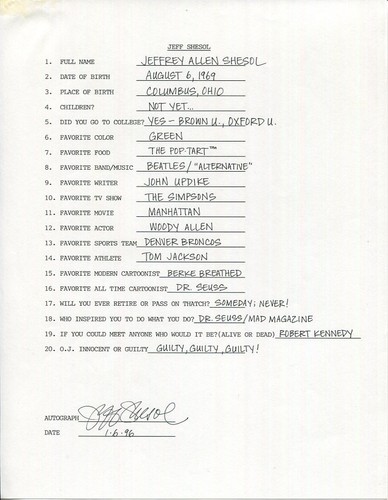 JEFF SHESOL
1. FULL NAME JEFFREY ALLEN SHESOL
2. DATE OF BIRTH AUGUST 6, 1969
3. PLACE OF BIRTH COLUMBUS, OHIO
4. CHILDREN? NOT YET...
5. DID YOU GO TO COLLEGE? YES – BROWN U., OXFORD U.
6. FAVORITE COLOR GREEN
7. FAVORITE FOOD THE POP-TART™
8. FAVORITE BAND/MUSIC BEATLES/"ALTERNATIVE"
9. FAVORITE WRITER JOHN UPDIKE
10. FAVORITE TV SHOW THE SIMPSONS
11. FAVORITE MOVIE MANHATTAN
12. FAVORITE ACTOR WOODY ALLEN
13. FAVORITE SPORTS TEAM DENVER BRONCOS
14. FAVORITE ATHLETE TOM JACKSON
15. FAVORITE MODERN CARTOONIST BERKE BREATHED
16. FAVORITE ALL TIME CARTOONIST DR. SEUSS
17. WILL YOU EVER RETIRE OR PASS ON THATCH? SOMEDAY; NEVER!
18. WHO INSPIRED YOU TO DO WHAT YOU DO? DR. SEUSS/MAD MAGAZINE
19. IF YOU COULD MEET ANYONE WHO WOULD IT BE?(ALIVE OR DEAD) ROBERT KENNEDY
20. O.J. INNOCENT OR GUILTY GUILTY, GUILTY, GUILTY!
AUTOGRAPH Jeff Shesol
DATE 1.6.96